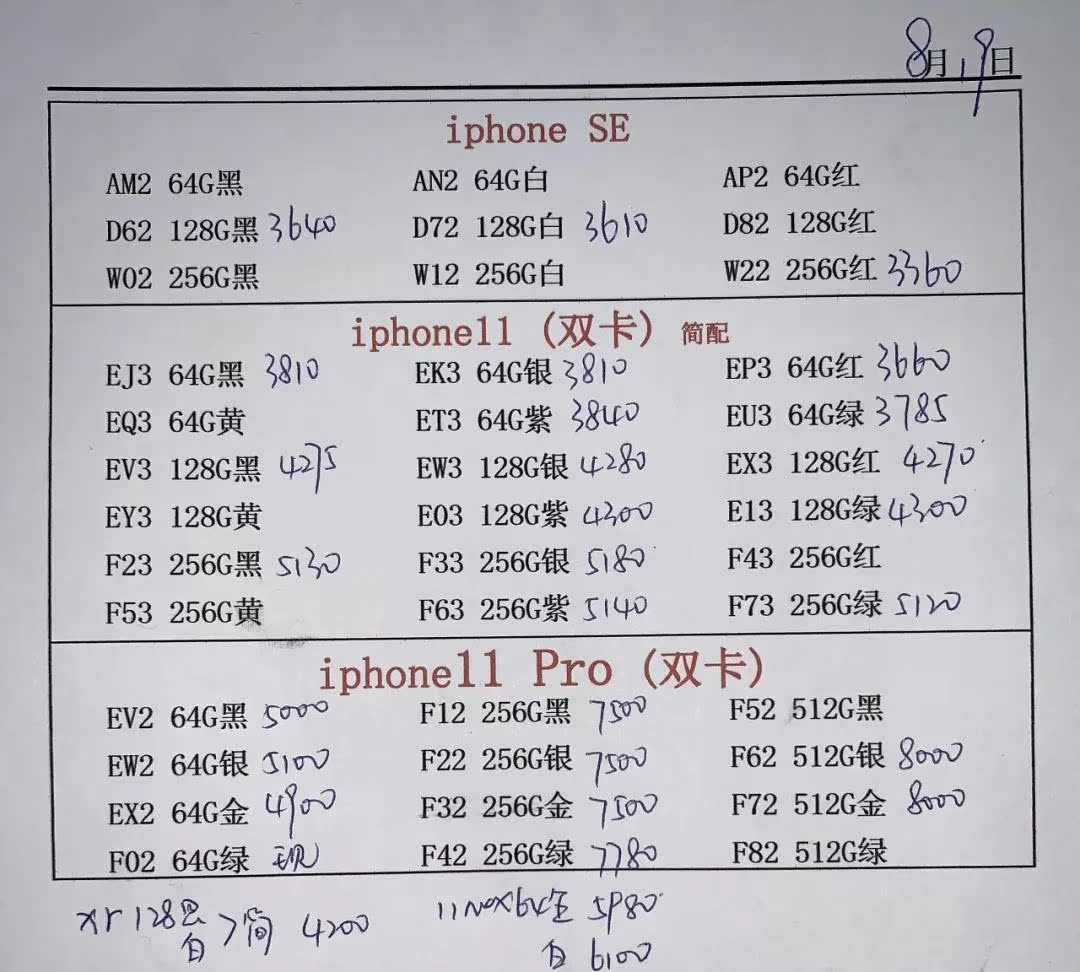 8月19日
iphone SE
AM2 64G黑 AN2 64G白 AP2 64G红
D62 128G黑 3640 D72 128G白 3610 D82 128G红
W02 256G黑 W12 256G白 W22 256G红 3360
iphone11 (双卡) 简配
EJ3 64G黑 3810 EK3 64G银 3810 EP3 64G红 3660
EQ3 64G黄 ET3 64G紫 3840 EU3 64G绿 3785
EV3 128G黑 4275 EW3 128G银 4280 EX3 128G红 4270
EY3 128G黄 E03 128G紫 4300 E13 128G绿 4300
F23 256G黑 5130 F33 256G银 5180 F43 256G红
F53 256G黄 F63 256G紫 5140 F73 256G绿 5120
iphone11 Pro (双卡)
EV2 64G黑 5000 F12 256G黑 7500 F52 512G黑
EW2 64G银 5100 F22 256G银 7500 F62 512G银 8000
EX2 64G金 4900 F32 256G金 7500 F72 512G金 8000
F02 64G绿 现 F42 256G绿 7780 F82 512G绿
xr 128黑 简 4200 5980
白 白 6100